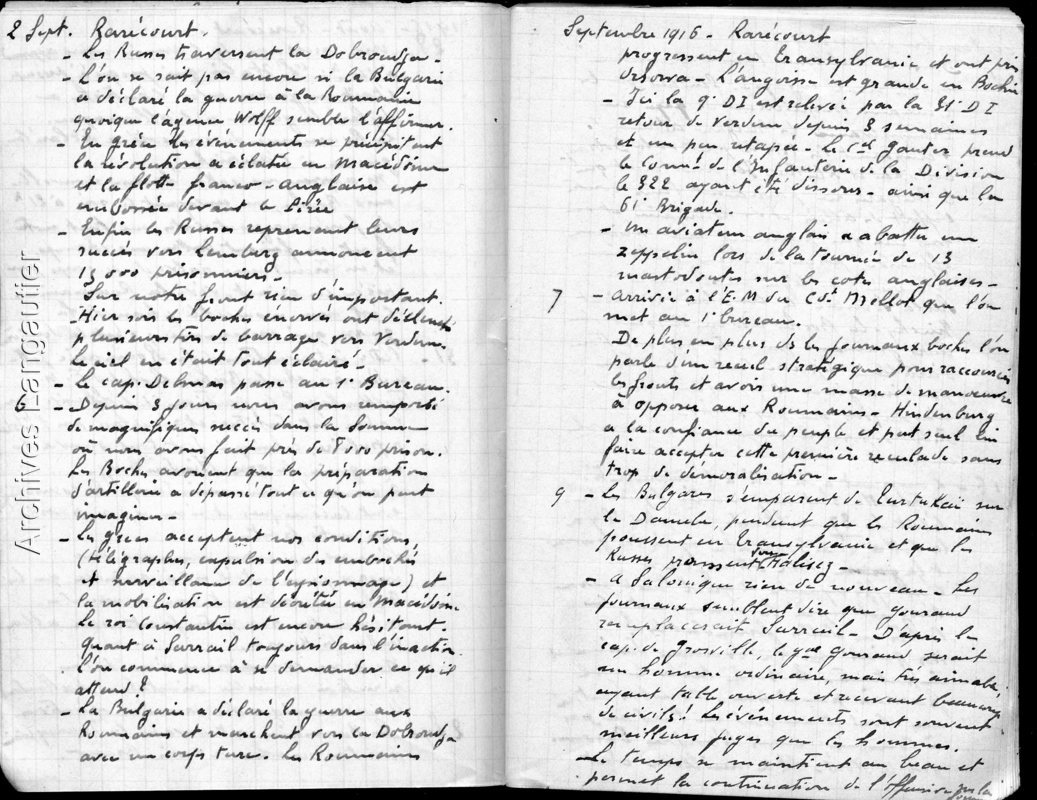 2 Sept. Rarécourt.
- Les Russes traversent la Dobroudja -
- L'on ne sait pas encore si la Bulgarie
a déclaré la guerre à la Roumanie
quoique l'agence Wolff semble l'affirmer.
- En grèce les événements se précipitent
la révolution a éclatée en Macédoine
et la flotte franco-anglaise est
embossée devant le Pirée
- Enfin les Russes reprennent leurs
succès vers Lemberg annoncent
15000 prisonniers -
Sur notre front rien d'important.
Hier soir les boches énervés ont déclenché
plusieurs tirs de barrage vers Verdun.
Le ciel en était tout éclairé -
- Le cap. Delmas passe au 1er Bureau.
6 - Depuis 3 jours nous avons remporté
de magnifiques succès dans la Somme
où nous avons fait près de 7000 prison.
Les Boches avouent que la préparation
d'artillerie a dépassé tout ce qu'on peut
imaginer -
- Les grecs acceptent nos conditions,
(télégraphes, expulsion des embochés
et surveillance de l'espionnage) et
la mobilisation est décrétée en Macédoine
Le roi Constantin est encore hésitant.
Quant à Sarrail toujours dans l'inaction
l'on commence à se demander ce qu'il
attend ?
- La Bulgarie a déclaré la guerre aux
Roumains et marchent vers la Dobroudja
avec un corps turc. Les Roumains
Septembre 1916 - Rarécourt
progressent en Transylvanie et ont pris
Orsova - L'angoisse est grande en Bochie
- Ici la 9e DI est relevée par la 31e DI
retour de Verdun depuis 3 semaines
et un peu retapée - Le Cel Gautier prend
le Comnt de l'Infanterie de la Division
le 322 ayant été dissous - ainsi que la
61e Brigade.
- Un aviateur anglais a abattu un
zeppelin lors de la tournée de 13
mastodontes sur les cotes anglaises -
7 - arrivée à l'E.M du Cdt Mellot que l'on
met au 1er bureau.
De plus en plus ds les journaux boches l'on
parle d'un recul stratégique pour raccourcir
les fronts et avoir une masse de manoeuvre
à opposer aux Roumains - Hindenburg
a la confiance du peuple et peut seul lui
faire accepter cette première reculade sans
trop de démoralisation -
9 - Les Bulgares s'emparent de Turtukaï sur
le Danube, pendant que les Roumains
poussent en Transylvanie et que les
Russes pressent sur Halisez -
- A Salonique rien de nouveau - Les
journaux semblent dire que gouraud
remplacerait Sarrail - D'après le
cap. de Grosville, le gral Gouraud serait
un homme ordinaire, mais très aimable,
ayant table ouverte et recevant beaucoup
de civils! Les événements sont souvent
meilleurs juges que les hommes.
- Le temps se maintient au beau et
permet la continuation de l'offensive sur la
Archives Langautier